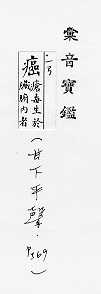 彙音寶鑑
癌
瘡毒生於
臟腑內者
(甘下平聲, P369)